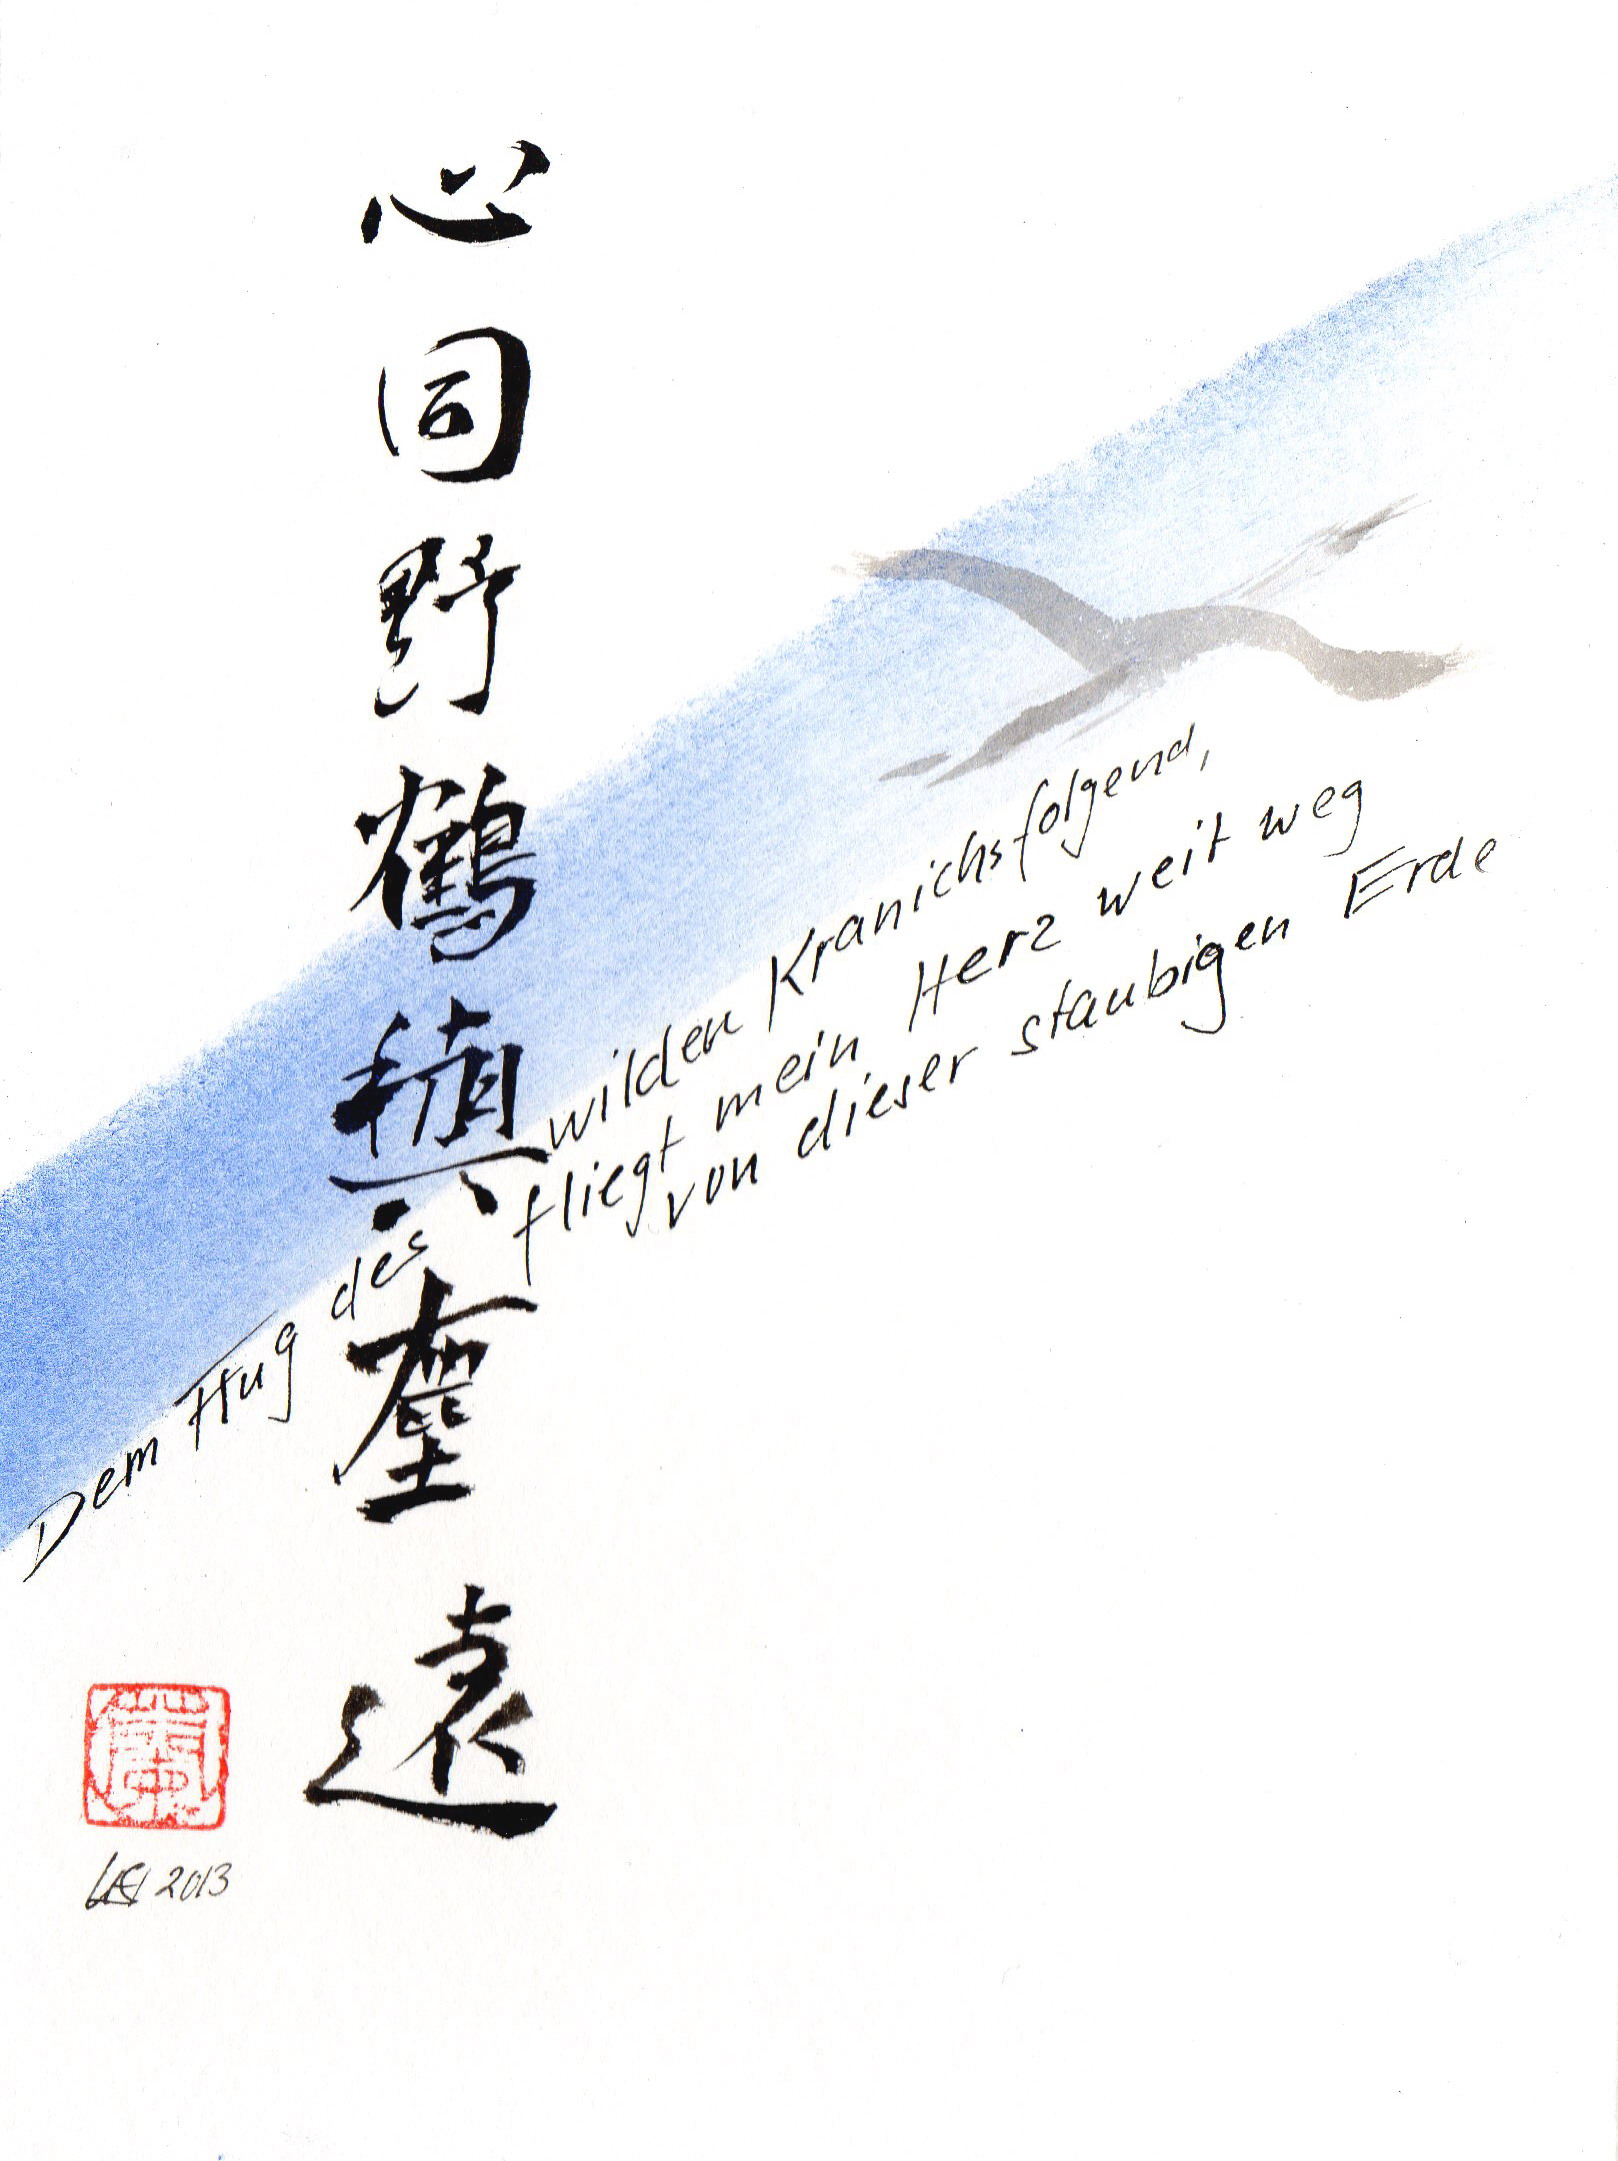 心同野鶴與塵遠
Dem Flug des wilden Kranichs folgend,
fliegt mein Herz weit weg
von dieser staubigen Erde
2013